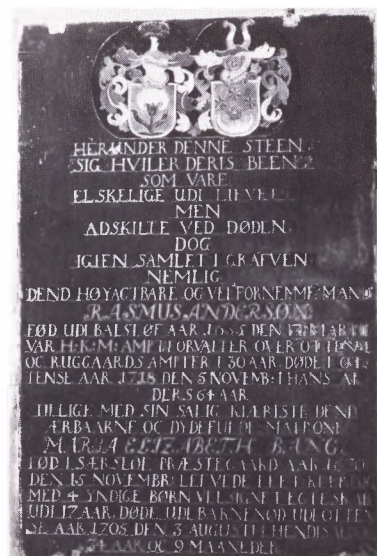 HERUNDER DENNE STEEN
SIG HVILER DERIS BEEN
SOM VARE
ELSKELIGE UDI LIEVET
MEN
ADSKILTE VED DØDEN
DOG
IGIEN SAMLET I GRAFVEN
NEMLIG
DEND HØYACTBARE OG VELFORNEMME MAND
RASMUS ANDERSØN
FØD UDI BALSLØF AAR DEN
VAR H: K: M: AMPTFORVALTER OVER OTTENSE
OC RUGGAARDS AMPTER I 30 AAR DØDE I OT
TENSE AAR 1718 DEN 5 NOVEMB: I HANS AL
DERS 64 AAR
TILLIGE MED SIN SALIG KIÆRISTE DEND
ÆRBAARNE OC DYDEFULDE MATRONE
MARIA ELIZABETH BANG
FØD I SÆRSLØF PRÆSTEGAARD AAR
DEN 15 NOVEMBR: LEVEDE I ET KIERLIG
MED 4 YNDIGE BØRN VELSIGNET ECTESKAB
UDI 17 AAR. DØDE UDI BARNENØD UDI OTTEN
SE AAR 1705 DEN 3 AUGUSTI I HENDIS ALDERS
34 AAR OC 9 MAANEDER